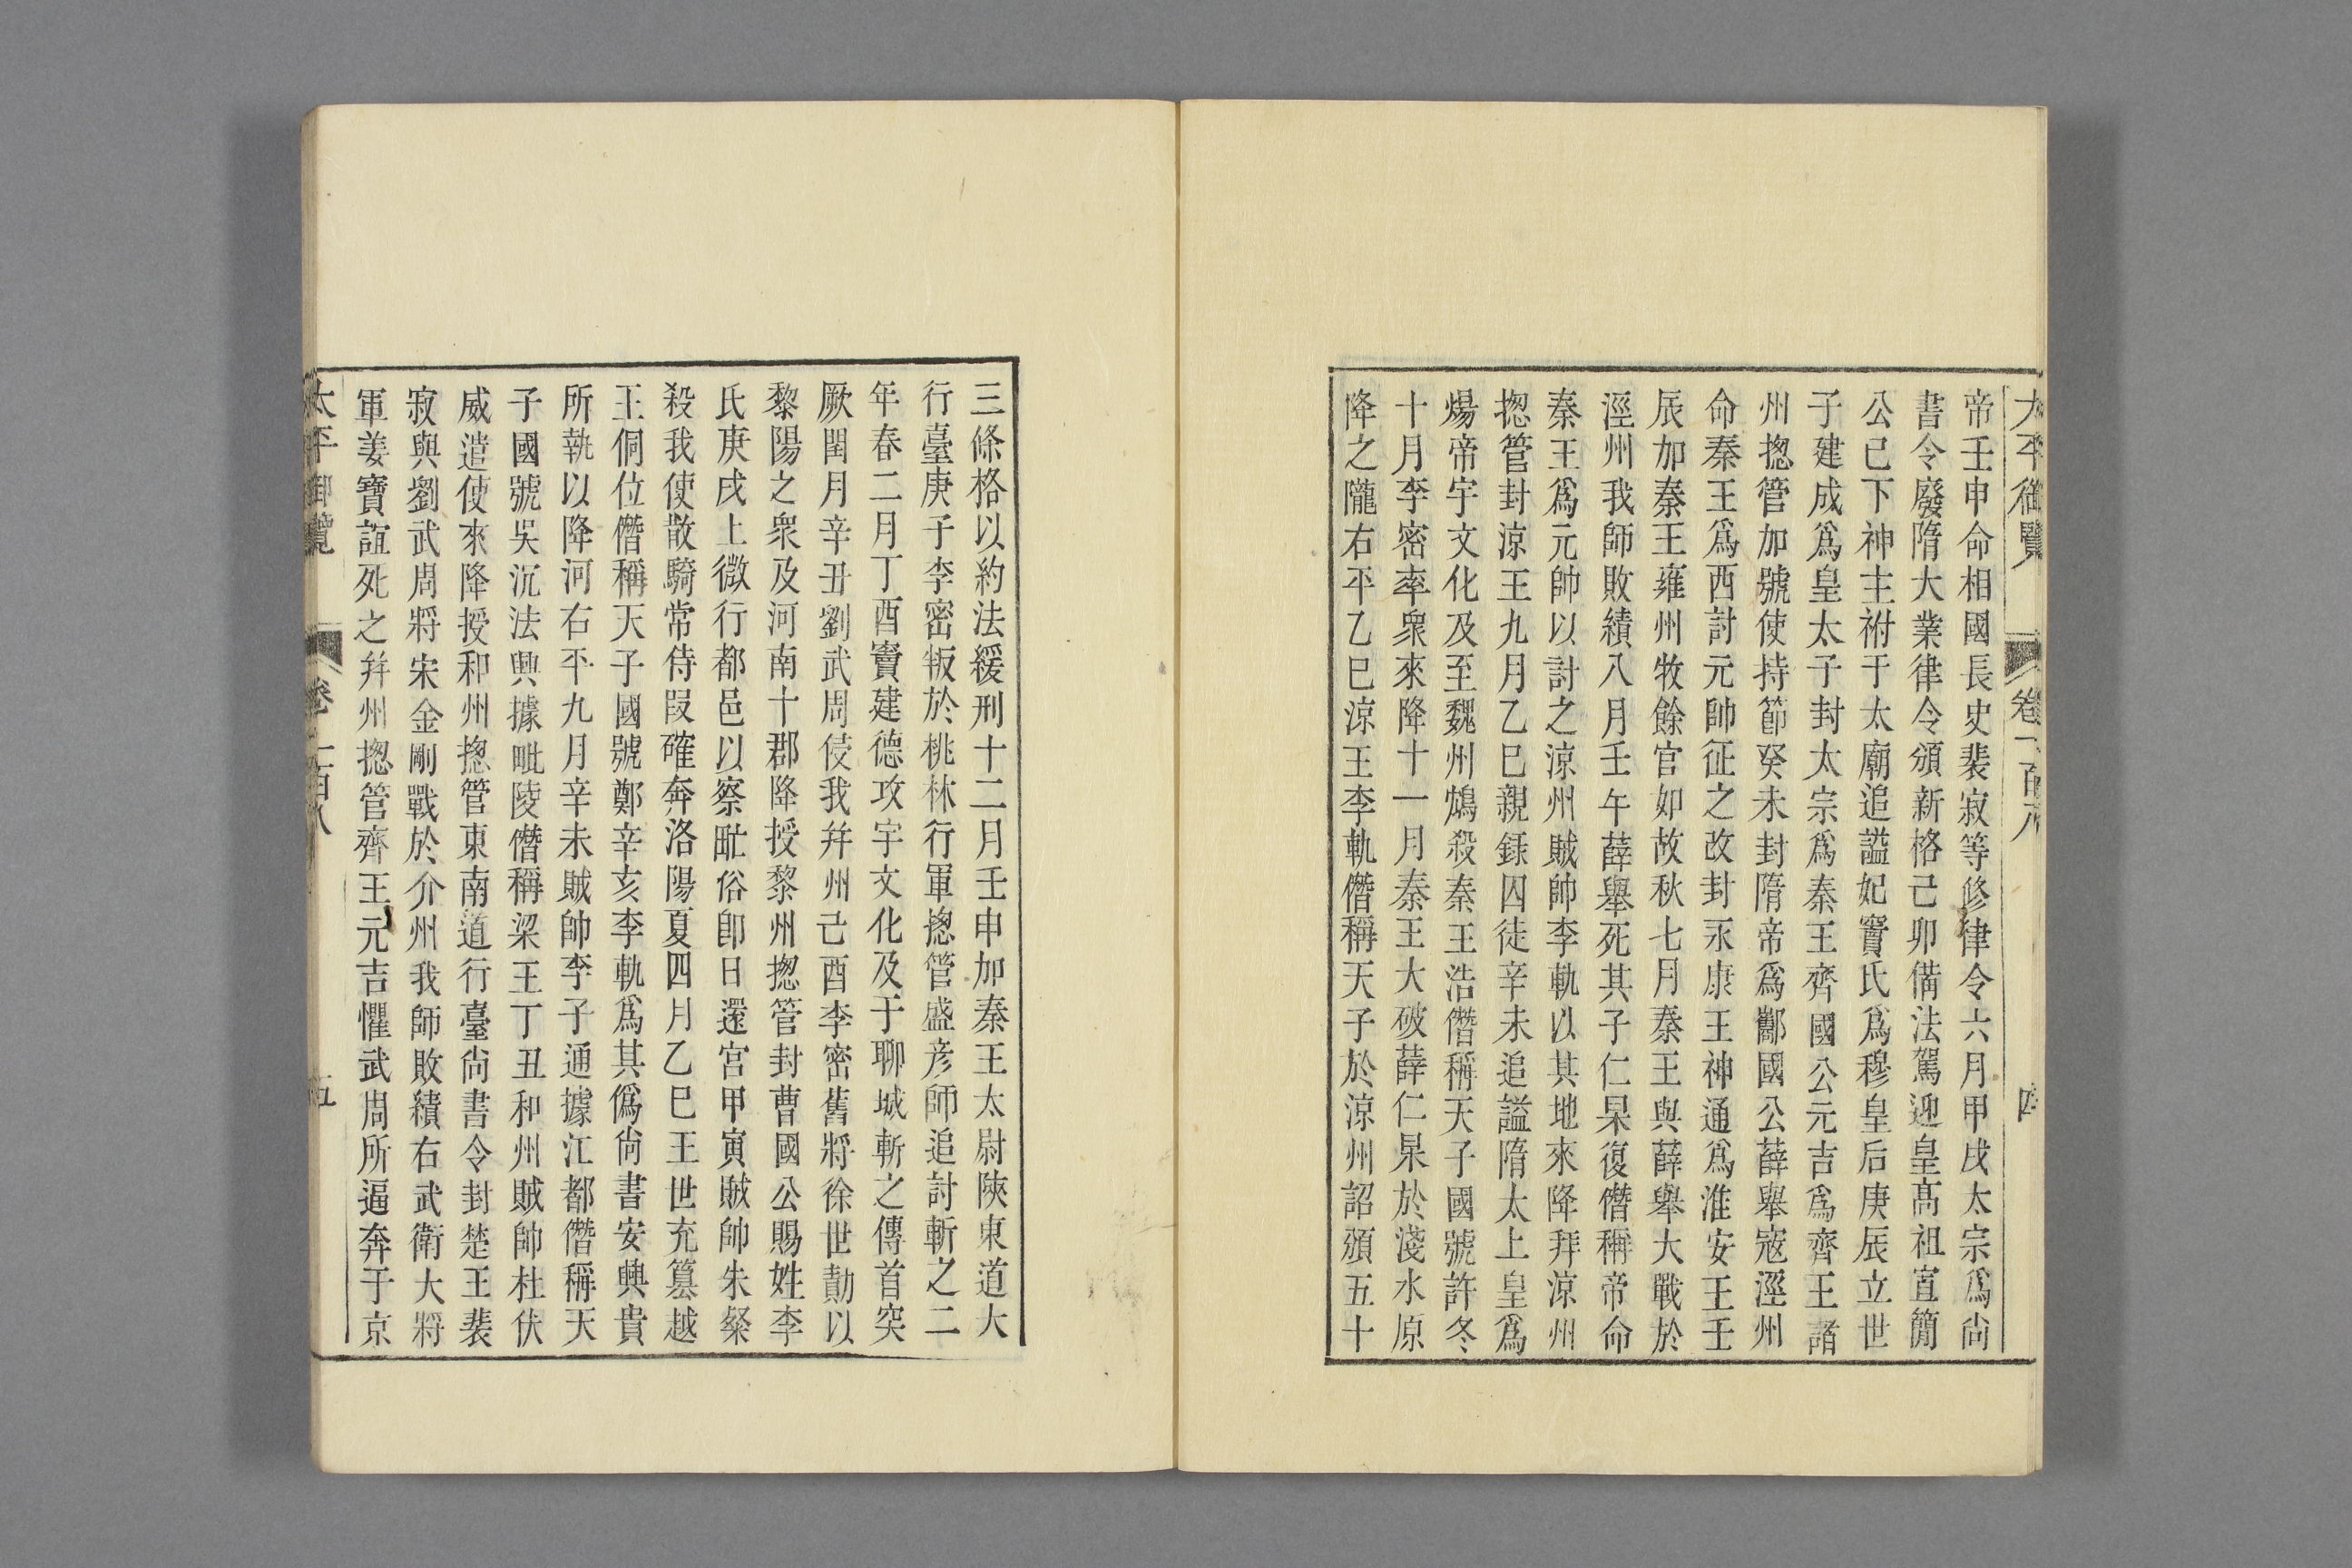 太平御覽 卷一百八 四
帝壬申命相國長史裴寂等修律令六月甲戌太宗爲尙
書令廢隋大業律令頒新格己卯備法駕迎皇髙祖宣簡
公已下神主祔于太廟追謚妃竇氏爲穆皇后庚辰立世
子建成爲皇太子封太宗爲秦王齊國公元吉爲齊王諸
州揔管加號使持節癸未封隋帝爲酅國公薛舉寇涇州
命秦王爲西討元帥征之改封永康王神通爲淮安王壬
辰加秦王雍州牧餘官如故秋七月秦王與薛舉大戰於
涇州我師敗績八月壬午薛舉死其子仁杲復僭稱帝命
秦王爲元帥以討之涼州賊帥李軌以其地來降拜涼州
揔管封涼王九月乙巳親錄囚徒辛未追謚隋太上皇爲
煬帝宇文化及至魏州鴆殺秦王浩僭稱天子國號許冬
十月李密率衆來降十一月秦王大破薛仁杲於淺水原
降之隴右平乙巳涼王李軌僭稱天子於涼州詔頒五十
三條格以約法緩刑十二月壬申加秦王太尉陝東道大
行臺庚子李密叛於桃林行軍揔管盛彥師追討斬之二
年春二月丁酉竇建德攻宇文化及于聊城斬之傳首突
厥閏月辛丑劉武周侵我幷州己酉李密舊將徐世勣以
黎陽之衆及河南十郡降授黎州揔管封曹國公賜姓李
氏庚戌上微行都邑以察甿俗卽日還宮甲寅賊帥朱粲
殺我使散騎常侍叚確奔洛陽夏四月乙巳王世充簒越
王侗位僭稱天子國號鄭辛亥李軌爲其僞尙書安興貴
所執以降河右平九月辛未賊帥李子通據江都僭稱天
子國號吳沉法興據毗陵僭稱梁王丁丑和州賊帥杜伏
威遣使來降授和州揔管東南道行臺尙書令封楚王裴
寂與劉武周將宋金剛戰於介州我師敗績右武衛大將
軍姜寶誼死之幷州揔管齊王元吉懼武周所逼奔于京
太平御覽 卷一百八 五